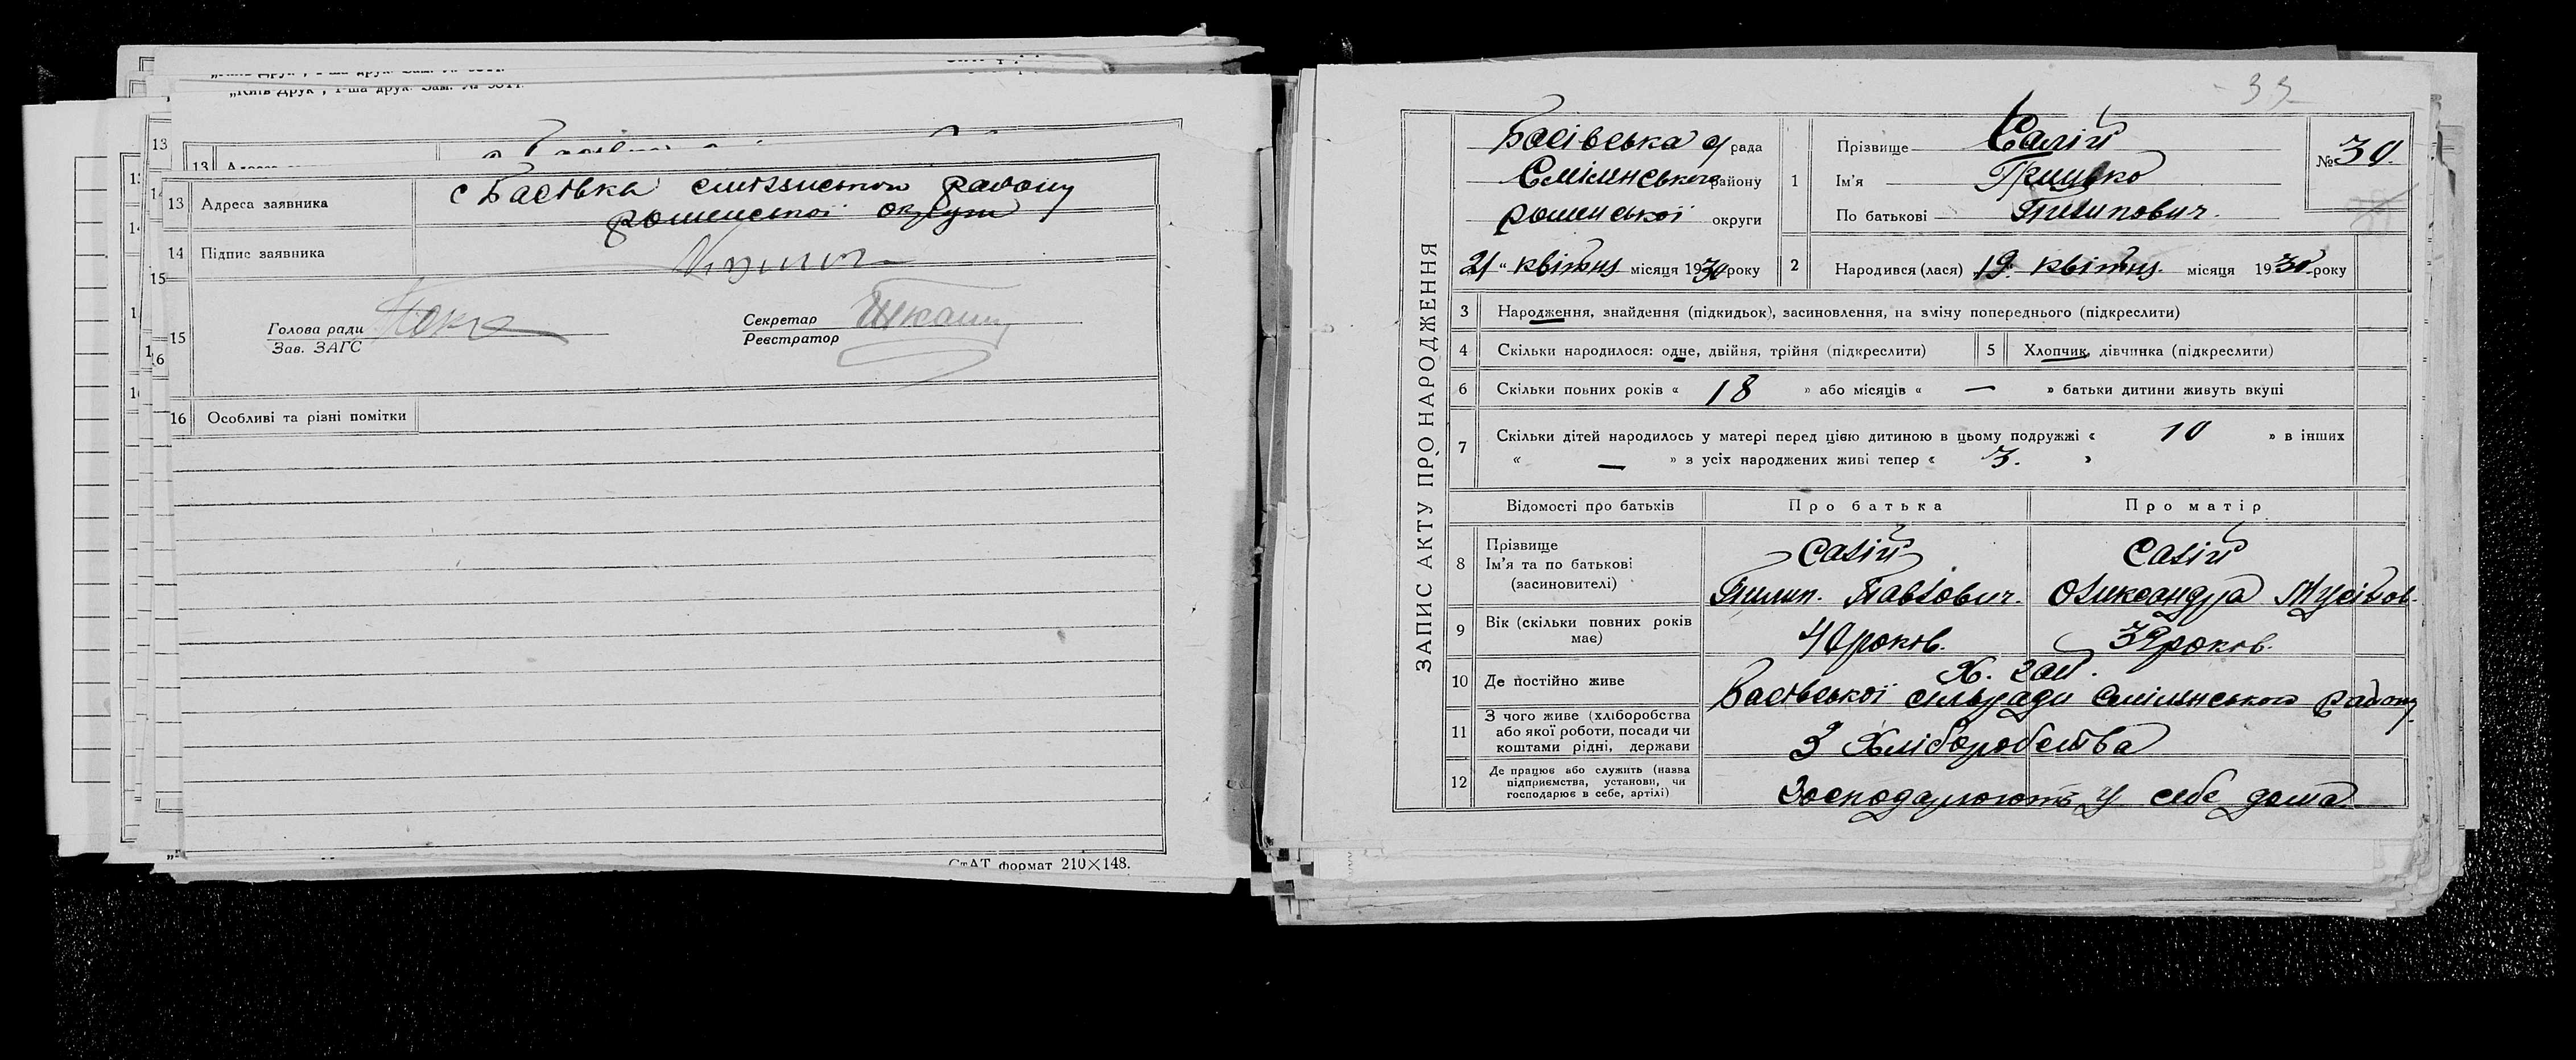 „Київ-Друк", 1-ша друк. Зам. №
13
13 Адреса заявника с Басівка смілянського району
роменської округи
14 Підпис заявника
15
Голова ради
Зав. ЗАГС
Секретар Ткач
Реєстратор
16 Особливі та різні помітки
СтАТ формат 210×148.
33
ЗАПИС АКТУ ПРО НАРОДЖЕННЯ
Басівська с/рада
Смілянського району
роменської округи
21 „ квітня місяця 1930 року
1 Прізвище Салій
Ім'я Грицько
По батькові Пилипович.
№ 30
2 Народився (лася) 19 квітня місяця 1930 року
3 Народження, знайдення (підкидьок), засиновлення, на зміну попереднього (підкреслити)
4 Скільки народилося: одне, двійня, трійня (підкреслити) 5 Хлопчик, дівчинка (підкреслити)
6 Скільки повних років « 18 » або місяців « — » батьки дитини живуть вкупі
7 Скільки дітей народилось у матері перед цією дитиною в цьому подружжі « 10 » в інших
« — » з усіх народжених живі тепер « 3. »
Відомості про батьків Про батька Про матір
8 Прізвище
Ім'я та по батькові
(засиновителі)
Салій Салій
Пилип. Павлович. Олександра Мусівов.
9 Вік (скільки повних років має) 40 років. 39 років.
10 Де постійно живе Х. гай.
Басівської сільради Смілянського району
11 З чого живе (хліборобства або якої роботи, посади чи коштами рідні, держави З Хліборобства
12 Де працює або служить (назва підприємства, установи, чи господарює в себе, артілі) Господарюють у себе дома